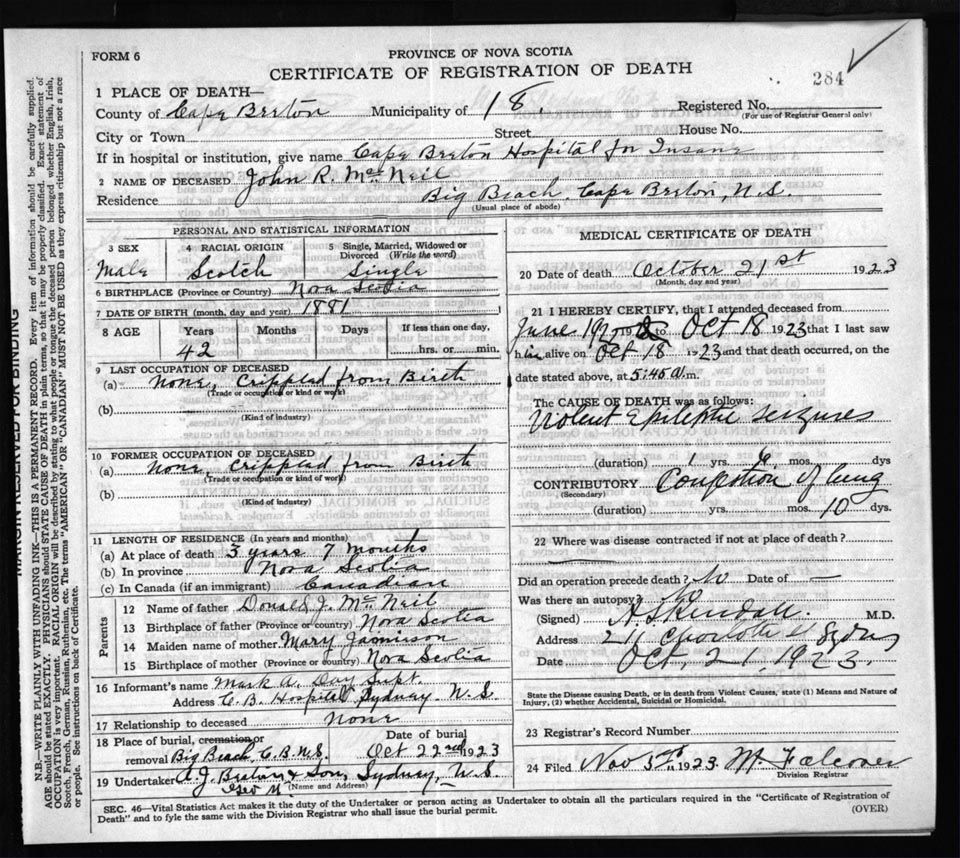 FORM 6
PROVINCE OF NOVA SCOTIA
CERTIFICATE OF REGISTRATION OF DEATH
284
1 PLACE OF DEATH—
County of Cape Breton Municipality of 18. Registered No.
(For use of Registrar General only)
City or Town Street House No.
If in hospital or institution, give name Cape Breton Hospital for Insane
2 NAME OF DECEASED John R. McNeil
Residence Big Beach, Cape Breton, N.S.
(Usual place of abode)
PERSONAL AND STATISTICAL INFORMATION
3 SEX 4 RACIAL ORIGIN 5 Single, Married, Widowed or Divorced (Write the word)
Male Scotch Single
6 BIRTHPLACE (Province or Country) Nova Scotia
7 DATE OF BIRTH (month, day and year) 1881
8 AGE Years Months Days If less than one day,
42 hrs. or min
9 LAST OCCUPATION OF DECEASED
(a) None, Crippled from Birth
(Trade or occupation or kind of work)
(b)
(Kind of industry)
10 FORMER OCCUPATION OF DECEASED
(a) None, Crippled from Birth
(Trade or occupation or kind of work)
(b)
(Kind of industry)
11 LENGTH OF RESIDENCE (In years and months)
(a) At place of death 5 years 7 months
(b) In province Nova Scotia
(c) In Canada (if an immigrant) Canadian
Parents
12 Name of father Donald J. McNeil
13 Birthplace of father (Province or country) Nova Scotia
14 Maiden name of mother Mary Jamieson
15 Birthplace of mother (Province or country) Nova Scotia
16 Informant's name Mark A. Day Supt.
Address C.B. Hospital Sydney N.S.
17 Relationship to deceased None
18 Place of burial, cremation or removal Date of burial
Big Beach C.B. N.S. Oct 22nd 1923
19 Undertaker A.J. Beaton & Son, Sydney, N.S.
(Name and Address)
MEDICAL CERTIFICATE OF DEATH
20 Date of death October 21st 1923
(Month, day and year)
21 I HEREBY CERTIFY, that I attended deceased from
June 19 to Oct 18 1923 that I last saw
him alive on Oct 18 1923 and that death occurred, on the
date stated above, at 5:45 a.m.
The CAUSE OF DEATH was as follows:
Violent Epileptic Seizures
(duration) 1 yrs. mos. dys
CONTRIBUTORY Congestion of lung
(Secondary)
(duration) yrs. mos. 10 dys.
22 Where was disease contracted if not at place of death?
Did an operation precede death? No Date of —
Was there an autopsy? No
(Signed) A.S. Kendall. M.D.
Address 211 Charlotte St Sydney
Date Oct. 21, 1923.
State the Disease causing Death, or in death from Violent Causes, state (1) Means and Nature of
Injury, (2) whether Accidental, Suicidal or Homicidal.
23 Registrar's Record Number
24 Filed Nov 5th 1923
Division Registrar
SEC. 46—Vital Statistics Act makes it the duty of the Undertaker or person acting as Undertaker to obtain all the particulars required in the "Certificate of Registration of
Death" and to fyle the same with the Division Registrar who shall issue the burial permit.
(OVER)
MARGIN RESERVED FOR BINDING
N.B.—WRITE PLAINLY WITH UNFADING INK—THIS IS A PERMANENT RECORD. Every item of information should be carefully supplied.
AGE should be stated EXACTLY. PHYSICIANS should STATE CAUSE OF DEATH in plain terms, so that it may be properly classified. Exact statement of
OCCUPATION is very important. RACIAL ORIGIN will be described by stating to what people or tongue the deceased person belonged whether English, Irish,
Scotch, French, German, Russian, Ruthenian, etc. The terms "AMERICAN" OR "CANADIAN" MUST NOT BE USED as they express citizenship but not a race
or people. See instructions on back of Certificate.